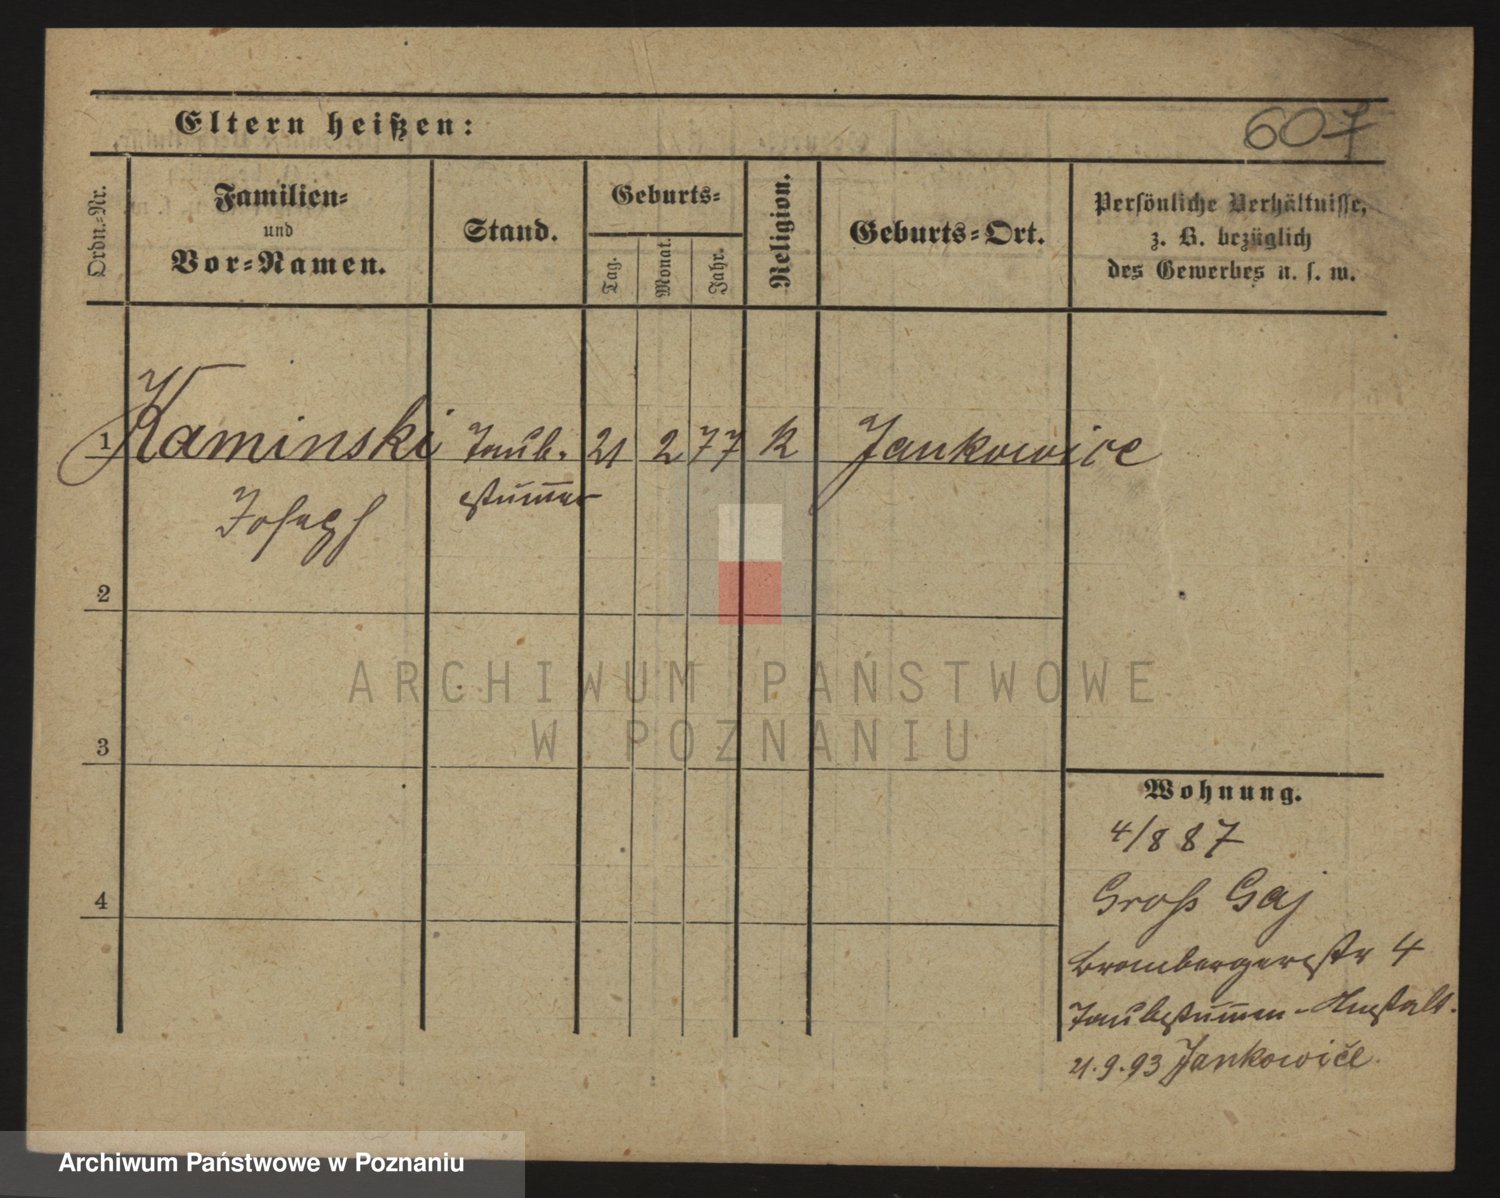 607
Eltern heißen:
Ordn.-Nr.
Familien-
und
Vor-Namen.
Stand.
Geburts-
Tag.
Monat.
Jahr.
Religion.
Geburts-Ort.
Persönliche Verhältnisse,
z. B. bezüglich
des Gewerbes u. s. w.
1 Kaminski Taub- 21 2 77 K Jankowice
Joseph stummer
2
3
4
Wohnung.
4/8 87
Groß Gaj
Brombergerstr 4
Taubstummen-Anstalt.
21.9.93 Jankowice
ARCHIWUM PAŃSTWOWE
W POZNANIU
Archiwum Państwowe w Poznaniu